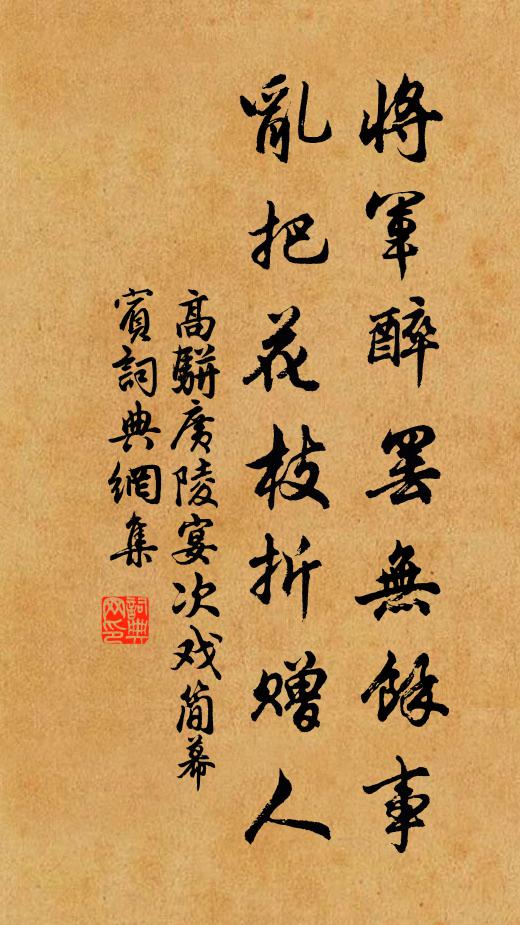 將軍醉罷無餘事
亂把花枝折贈人
高駢廣陵宴次戏简幕
賓詞典網集
詞典
网印